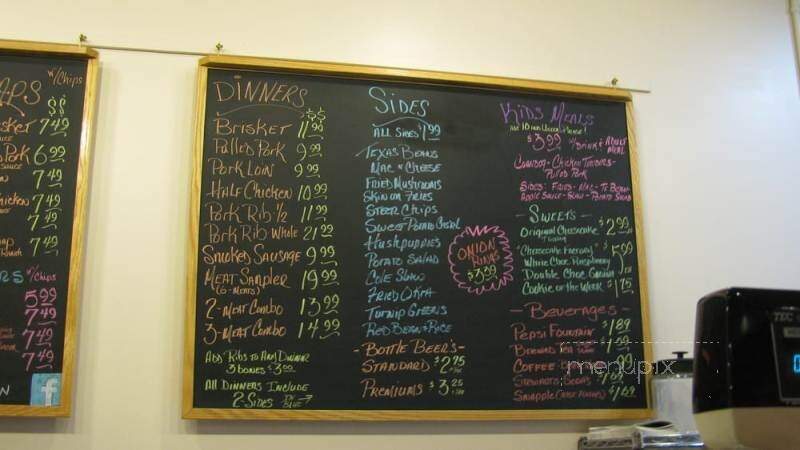 w/Chips
$$
7 49
6 99
7 49
7 49
7 49
7 49
w/Chips
5 99
7 49
7 49
7 49
DINNERS
$$
BRISKET 11 99
Pulled Pork 9 99
Pork Loin 9 99
Half Chicken 10 99
Pork Rib 1/2 11 99
Pork Rib Whole 21 99
Smoked Sausage 9 99
Meat Sampler 19 99
(6-Meats)
2-Meat Combo 13 99
3-Meat Combo 14 99
Add Ribs to Any Dinner
3 bones $3.00
All Dinners Include
2-Sides IN BLUE →
SIDES
All Sides $1.99
Texas Beans
Mac & Cheese
Fried Mushrooms
Skin on Fries
Steer Chips
Sweet Potato
Hushpuppies
Potato Salad
Cole Slaw
Fried Okra
Turnip Greens
Red Bean & Rice
ONION
RINGS
$3.99
- Bottle Beer's -
Standard $2.75
Premiums $3.25
Kids Meals
$3.99 w/Drink & Adult
Meal
Pulled Pork
Sides: Fries - Mac -
Apple Sauce - Slaw - Potato Salad
- Sweets -
Original Cheesecake $2.99
White Choc Raspberry
Double Choc
Cookie of the Week $1.75
- Beverages -
Pepsi Fountain $1.89
Brewed Tea
Coffee
Stewarts Sodas
Snapple $1.69
menupix
TEC